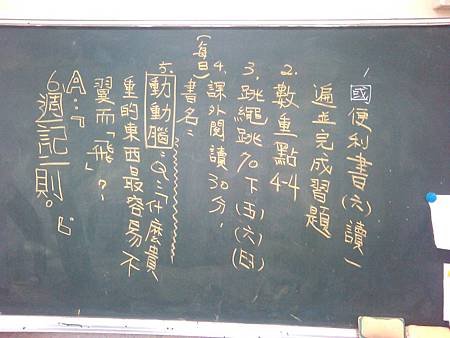 1.國便利書(六)讀一
遍並完成習題
2.數重點4-4
3.跳繩跳70下(五)(六)(日)
(每日)4.課外閱讀30分,
書名:
5.動動腦:Q:什麼貴
重的東西最容易不
翼而「飛」?
A:『
6週記二則。